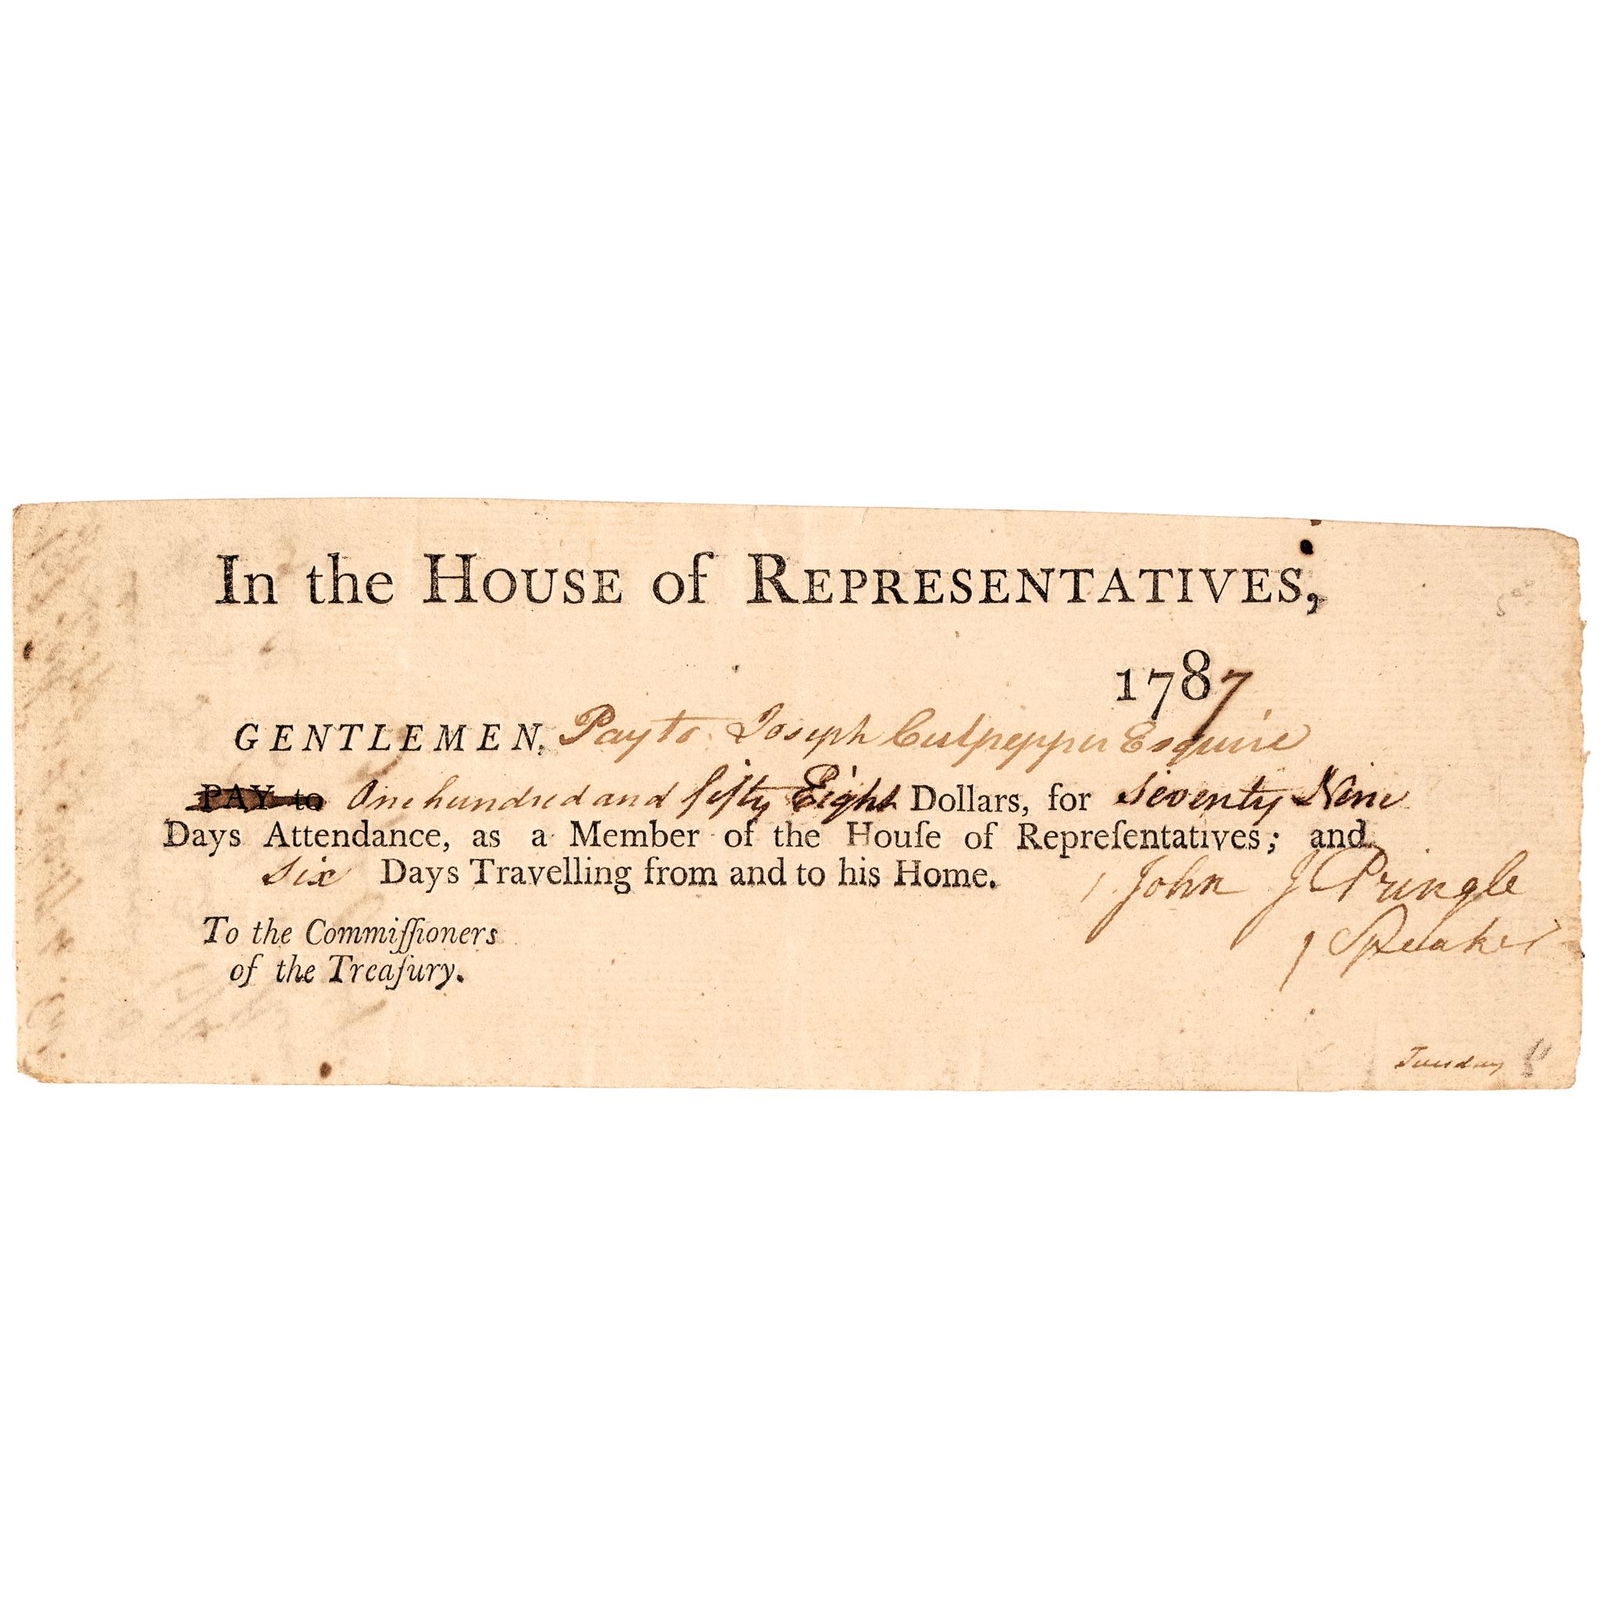 In the HOUSE of REPRESENTATIVES,
1787
GENTLEMEN, Pay to Joseph Culpepper Esquire
PAY to One hundred and fifty Eight Dollars, for seventy Nine
Days Attendance, as a Member of the Houſe of Repreſentatives; and
six Days Travelling from and to his Home.
John J Pringle
Speaker
To the Commiſſioners
of the Treaſury.
Tuesday